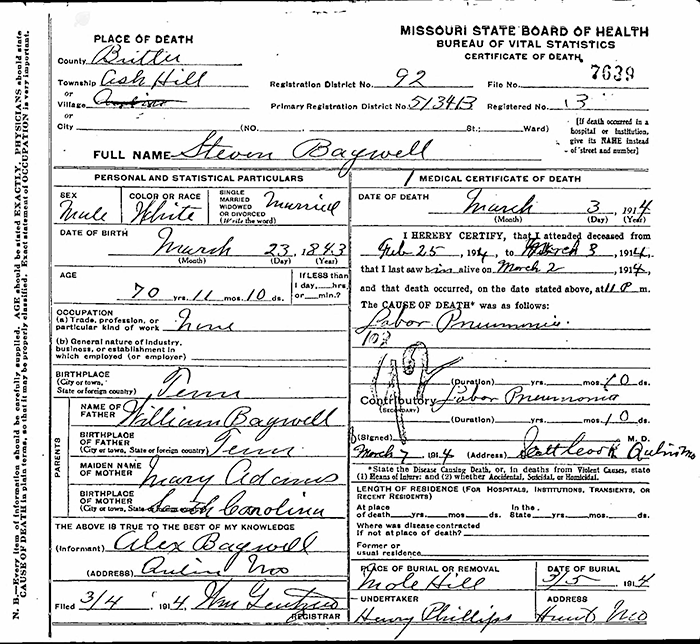 MISSOURI STATE BOARD OF HEALTH
BUREAU OF VITAL STATISTICS
CERTIFICATE OF DEATH
PLACE OF DEATH
County Buttler
Township Ash Hill
or
Village
or
City (NO. St.: Ward)
Registration District No. 92 File No. 7639
Primary Registration District No. 5134B Registered No. 13
[If death occurred in a
hospital or institution,
give its NAME instead
of street and number]
FULL NAME Steven Bagwell
PERSONAL AND STATISTICAL PARTICULARS
SEX Male
COLOR OR RACE White
SINGLE
MARRIED
WIDOWED
OR DIVORCED
(Write the word) Married
DATE OF BIRTH March 23, 1843
(Month) (Day) (Year)
AGE 70 yrs. 11 mos. 10 ds.
If LESS than
1 day, hrs.
or min.?
OCCUPATION
(a) Trade, profession, or
particular kind of work None
(b) General nature of industry,
business, or establishment in
which employed (or employer)
BIRTHPLACE
(City or town,
State or foreign country) Tenn
PARENTS
NAME OF
FATHER William Bagwell
BIRTHPLACE
OF FATHER
(City or town, State or foreign country) Tenn
MAIDEN NAME
OF MOTHER Mary Adams
BIRTHPLACE
OF MOTHER
(City or town, State or foreign country) South Carolina
THE ABOVE IS TRUE TO THE BEST OF MY KNOWLEDGE
(Informant) Alex Bagwell
(ADDRESS) Qulin Mo
Filed 3/4, 1914. Wm
REGISTRAR
MEDICAL CERTIFICATE OF DEATH
DATE OF DEATH March 3, 1914
(Month) (Day) (Year)
I HEREBY CERTIFY, that I attended deceased from
Feb 25, 1914, to March 3, 1914,
that I last saw him alive on March 2 1914,
and that death occurred, on the date stated above, at 11 P m.
The CAUSE OF DEATH* was as follows:
Labor Pneumonia
108
(Duration) yrs. mos. 10 ds.
Contributory Labor Pneumonia
(SECONDARY)
(Duration) yrs. mos. 10 ds.
(Signed) M. D.
March 7, 1914 (Address) Qulin Mo
*State the Disease Causing Death, or, in deaths from Violent Causes, state
(1) Means of Injury; and (2) whether Accidental, Suicidal, or Homicidal.
LENGTH OF RESIDENCE (FOR HOSPITALS, INSTITUTIONS, TRANSIENTS, OR
RECENT RESIDENTS)
At place
of death yrs. mos. ds.
In the
State yrs. mos. ds.
Where was disease contracted
if not at place of death?
Former or
usual residence
PLACE OF BURIAL OR REMOVAL
Mole Hill
DATE OF BURIAL
3/5 1914
UNDERTAKER
Henry Phillips
ADDRESS
Hunt Mo
N. B.—Every item of information should be carefully supplied. AGE should be stated EXACTLY. PHYSICIANS should state
CAUSE OF DEATH in plain terms, so that it may be properly classified. Exact statement of OCCUPATION is very important.